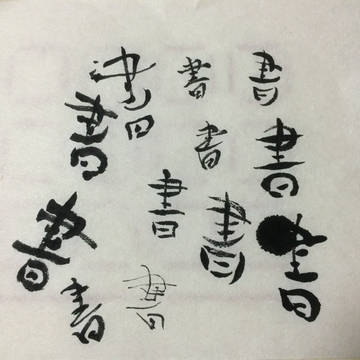 書
書
書
書
書
書
書
書
書
書
書
書